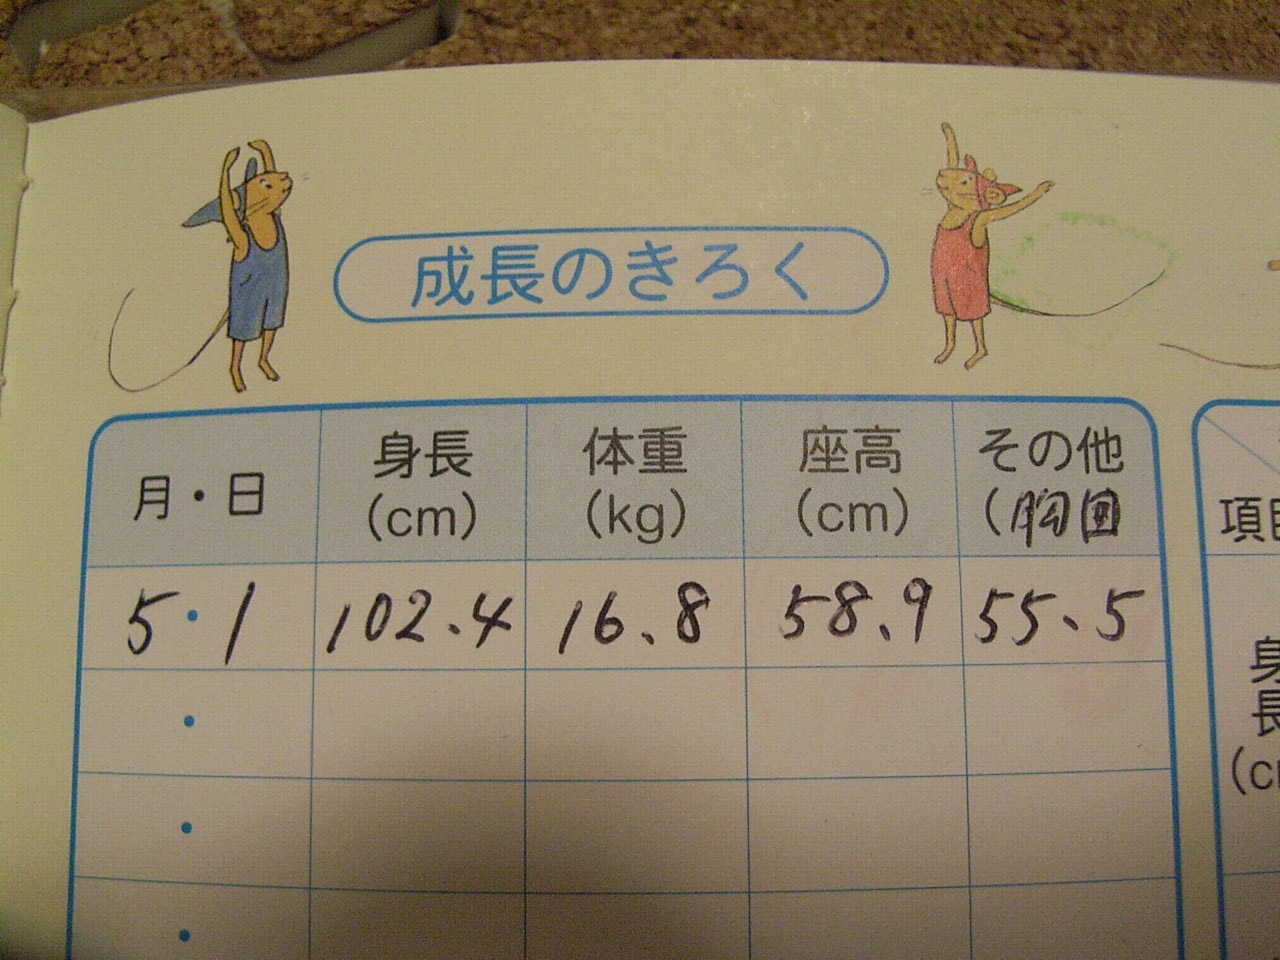 成長のきろく
月・日 身長 (cm) 体重 (kg) 座高 (cm) その他 (胸囲
5・1 102.4 16.8 58.9 55.5
・
・
・
項目
身長 (cm